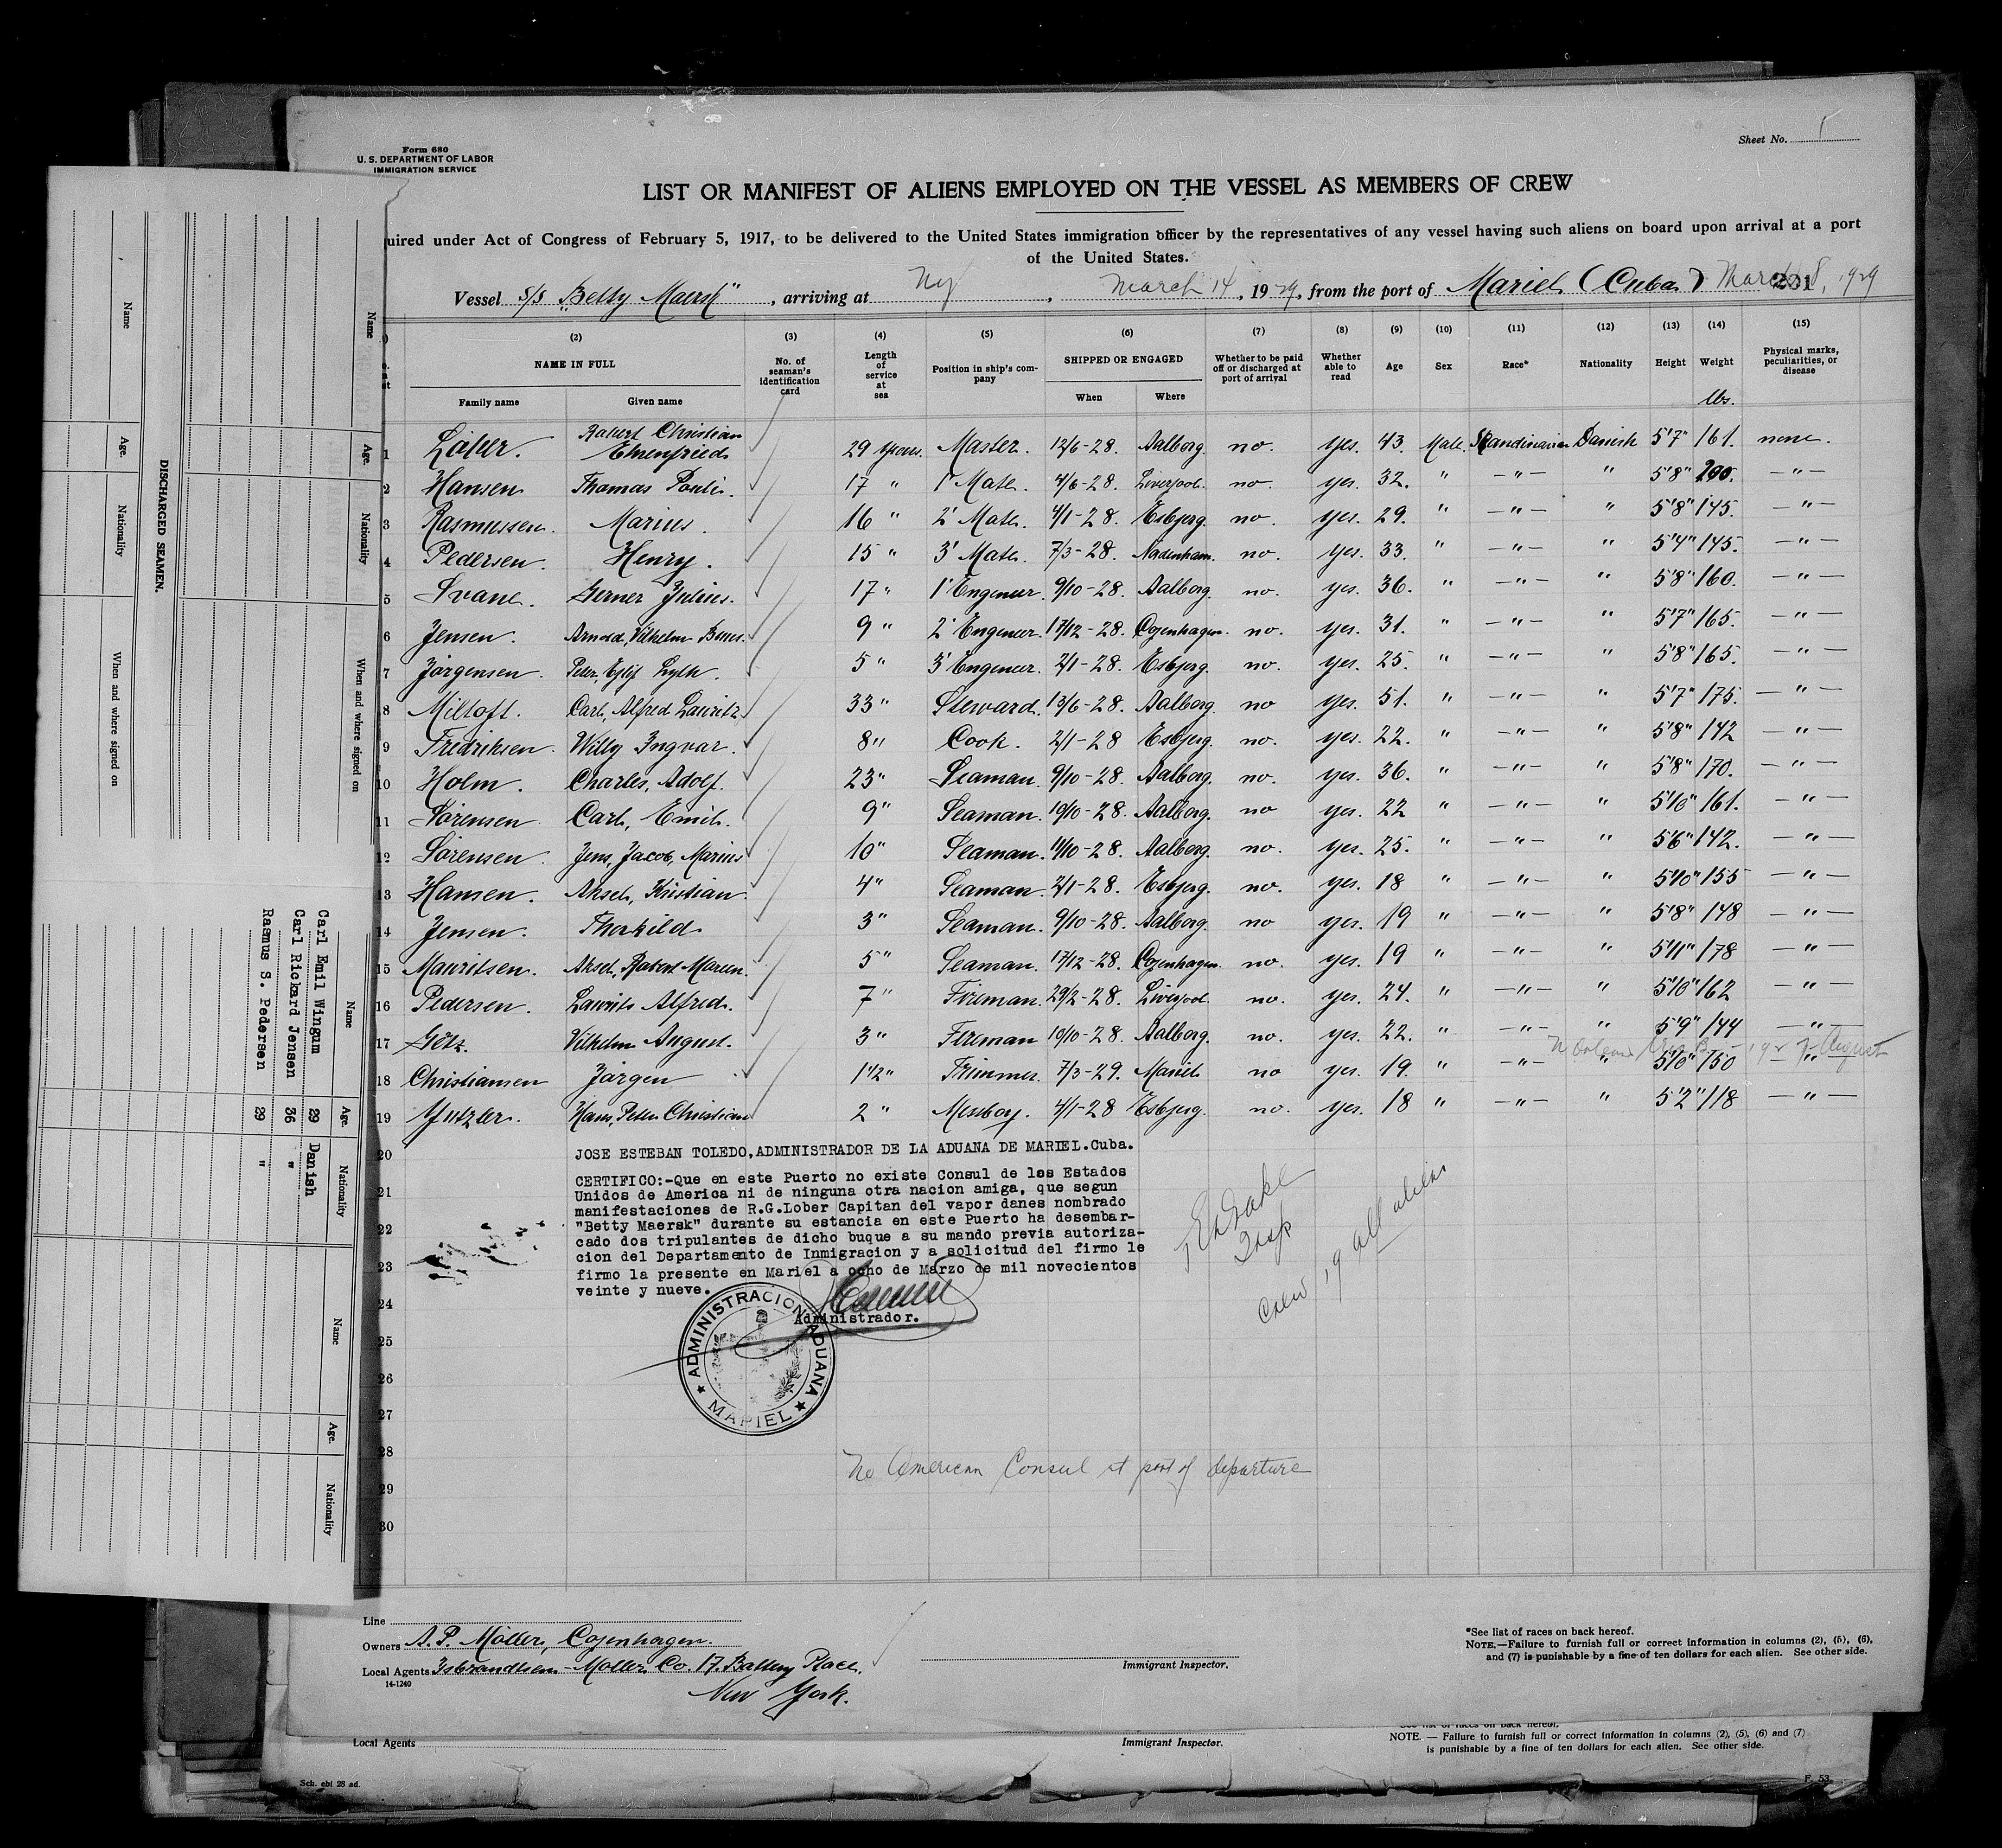 Form 680
U. S. DEPARTMENT OF LABOR
IMMIGRATION SERVICE
Sheet No. 1
LIST OR MANIFEST OF ALIENS EMPLOYED ON THE VESSEL AS MEMBERS OF CREW
uired under Act of Congress of February 5, 1917, to be delivered to the United States immigration officer by the representatives of any vessel having such aliens on board upon arrival at a port
of the United States.
Vessel S/S "Betty Maersk", arriving at Ny, March 14, 1929, from the port of Mariel (Cuba) March 8, 1929
201
(2) (3) (4) (5) (6) (7) (8) (9) (10) (11) (12) (13) (14) (15)
NAME IN FULL
Family name Given name
No. of seaman's identification card
Length of service at sea
Position in ship's company
SHIPPED OR ENGAGED
When Where
Whether to be paid off or discharged at port of arrival
Whether able to read
Age Sex Race* Nationality Height Weight
lbs.
Physical marks, peculiarities, or disease
1 Löber. Robert Christian Ehrenfried 29 years. Master. 12/6-28. Aalborg. no. yes. 43. Male. Skandinavian Danish 5'7" 161. none.
2 Hansen Thomas 17 " 1' Mate. 4/6-28. Liverpool. no. yes. 32. " -"- " 5'8" 200. -"-
3 Rasmussen. Marius. 16 " 2' Mate. 4/1-28. Esbjerg. no. yes. 29. " -"- " 5'8" 145. -"-
4 Pedersen. Henry. 15 " 3' Mate. 7/3-28. no. yes. 33. " -"- " 5'4" 145. -"-
5 Svane. Gerner Julius. 17 " 1' Engeneer. 9/10-28. Aalborg. no. yes. 36. " -"- " 5'8" 160. -"-
6 Jensen. Arnold, Vilhelm 9 " 2' Engeneer. 17/12-28. Copenhagen. no. yes. 31. " -"- " 5'7" 165. -"-
7 Jörgensen. Peter, Ejlif 5 " 3' Engeneer. 2/1-28. Esbjerg. no. yes. 25. " -"- " 5'8" 165. -"-
8 Miltoft. Carl, Alfred Lauritz 33 " Steward. 13/6-28. Aalborg. no yes. 51. " -"- " 5'7" 175. -"-
9 Fredriksen. Willy Ingvar. 8 " Cook. 2/1-28 Esbjerg. no. yes. 22. " -"- " 5'8" 142 -"-
10 Holm. Charles, Adolf. 23 " Seaman. 9/10-28. Aalborg. no. yes. 36. " -"- " 5'8" 170. -"-
11 Sörensen Carl, Emil. 9 " Seaman. 10/10-28. Aalborg. no yes. 22 " -"- " 5'10" 161. -"-
12 Sörensen. Jens, Jacob, Marius 10 " Seaman. 11/10-28. Aalborg. no. yes. 25. " -"- " 5'6" 142. -"-
13 Hansen. Aksel, Kristian. 4 " Seaman 2/1-28. Esbjerg. no. yes. 18 " -"- " 5'10" 155 -"-
14 Jensen. Thorkild. 3 " Seaman. 9/10-28. Aalborg. no yes. 19 " -"- " 5'8" 148 -"-
15 Mauritsen. Aksel, Robert 5 " Seaman. 17/12-28. Copenhagen. no. yes. 19 " -"- " 5'11" 178 -"-
16 Pedersen. Laurits Alfred. 7 " Fireman. 29/2-28. Liverpool. no. yes. 24. " -"- " 5'10" 162 -"-
17 Götz. Vilhelm August. 3 " Fireman 10/10-28. Aalborg. no. yes. 22. " -"- " 5'9" 144 -"-
18 Christiansen Jörgen 1 1/2 " Trimmer. 7/3-29. Mariel no yes. 19. " -"- " 5'10" 150 -"-
19 Yutzler. Hans, Peter Christian 2 " Messboy. 4/1-28 Esbjerg. no. yes. 18 " -"- " 5'2" 118 -"-
20
21
22
23
24
25
26
27
28
29
30
JOSE ESTEBAN TOLEDO, ADMINISTRADOR DE LA ADUANA DE MARIEL.Cuba.
CERTIFICO:-Que en este Puerto no existe Consul de los Estados
Unidos de America ni de ninguna otra nacion amiga, que segun
manifestaciones de R.G.Lober Capitan del vapor danes nombrado
"Betty Maersk" durante su estancia en este Puerto ha desembar-
cado dos tripulantes de dicho buque a su mando previa autoriza-
cion del Departamento de Inmigracion y a solicitud del firmo le
firmo la presente en Mariel a ocho de Marzo de mil novecientos
veinte y nueve.
Administrador.
ADMINISTRACION ADUANA
MARIEL
Insp
Crew 19 all aliens
No American Consul at port of departure
Line
Owners A. P. Möller, Copenhagen.
Local Agents Isbrandtsen-Moller Co. 17. Battery Place.
New York.
14-1240
Immigrant Inspector.
*See list of races on back hereof.
NOTE.—Failure to furnish full or correct information in columns (2), (5), (6),
and (7) is punishable by a fine of ten dollars for each alien. See other side.
Local Agents
Immigrant Inspector.
See list of races on back hereof.
NOTE. — Failure to furnish full or correct information in columns (2), (5), (6) and (7)
is punishable by a fine of ten dollars for each alien. See other side.
Sch. ebl 28 ad.
F. 53
DISCHARGED SEAMEN.
Name Age. Nationality When and where signed on
Name Age. Nationality When and where signed on
Name Age. Nationality
Carl Emil Wingum 29 Danish
Carl Rickard Jensen 36 "
Rasmus S. Pedersen 29 "
Name Age. Nationality